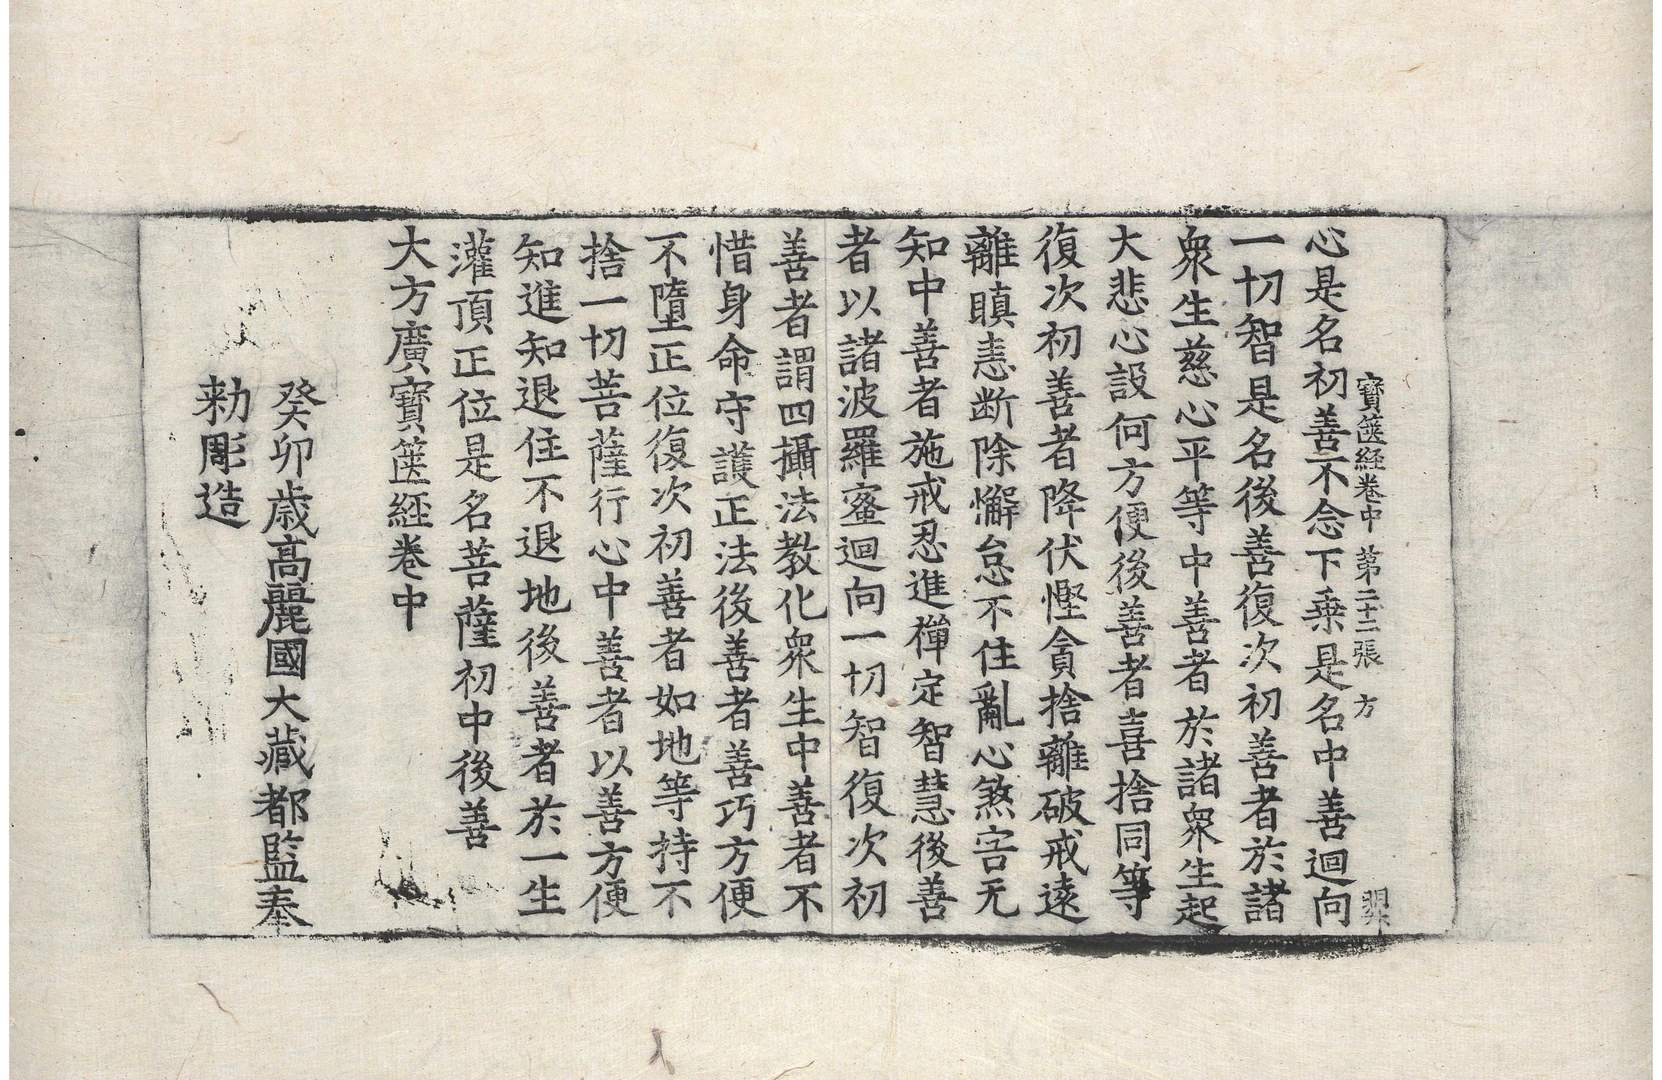 寶篋経卷中 第二十二張 方
心是名初善不念下乗是名中善迴向
一切智是名後善復次初善者於諸
衆生慈心平等中善者於諸衆生起
大悲心設何方便後善者喜捨同等
復次初善者降伏慳貪捨離破戒遠
離瞋恚断除懈怠不住亂心煞害无
知中善者施戒忍進禪定智慧後善
者以諸波羅蜜迴向一切智復次初
善者謂四攝法教化衆生中善者不
惜身命守護正法後善者善巧方便
不墮正位復次初善者如地等持不
捨一切菩薩行心中善者以善方便
知進知退住不退地後善者於一生
灌頂正位是名菩薩初中後善
大方廣寶篋経卷中
癸卯歳高麗國大藏都監奉
勅彫造